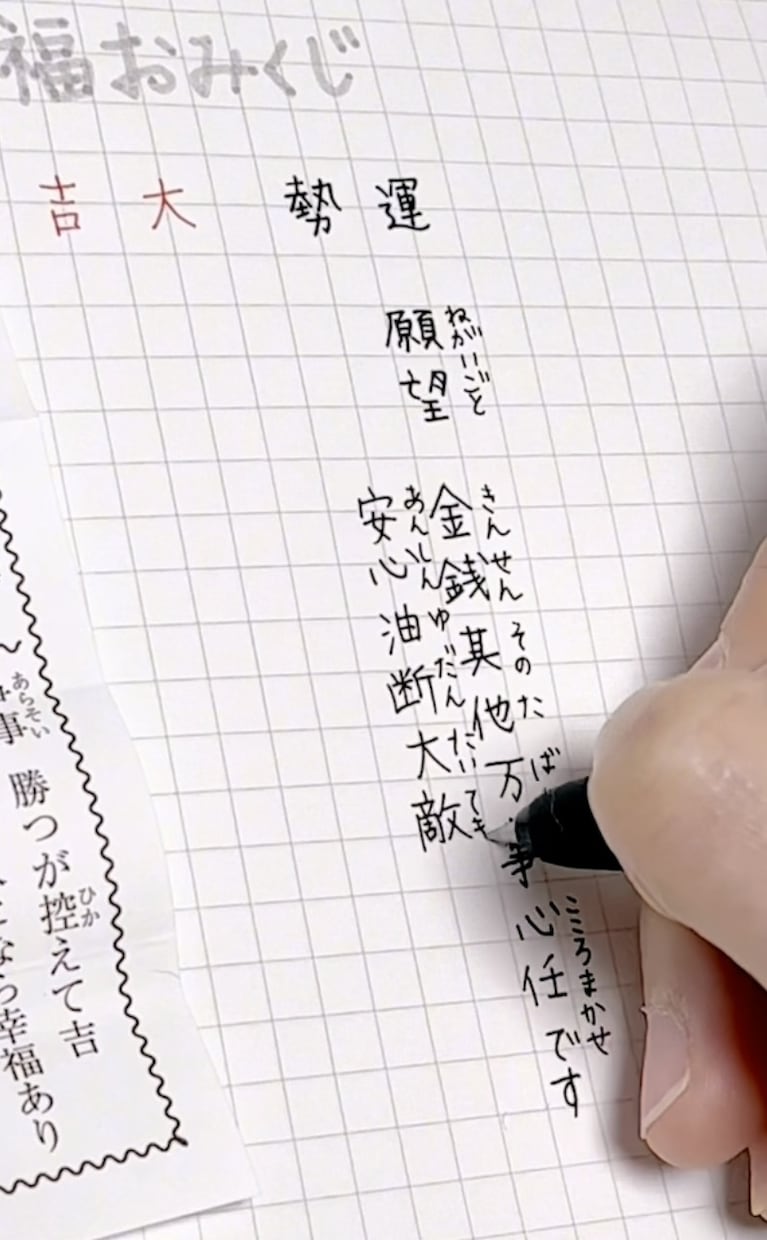 福おみくじ
運勢 大吉
願望
ねがいごと
金銭其他万事心任です
きんせん そのた ば こころまかせ
安心油断大敵
あんしんゆだんたいてき
事 勝つが控えて吉
あらそい ひか
なら幸福あり